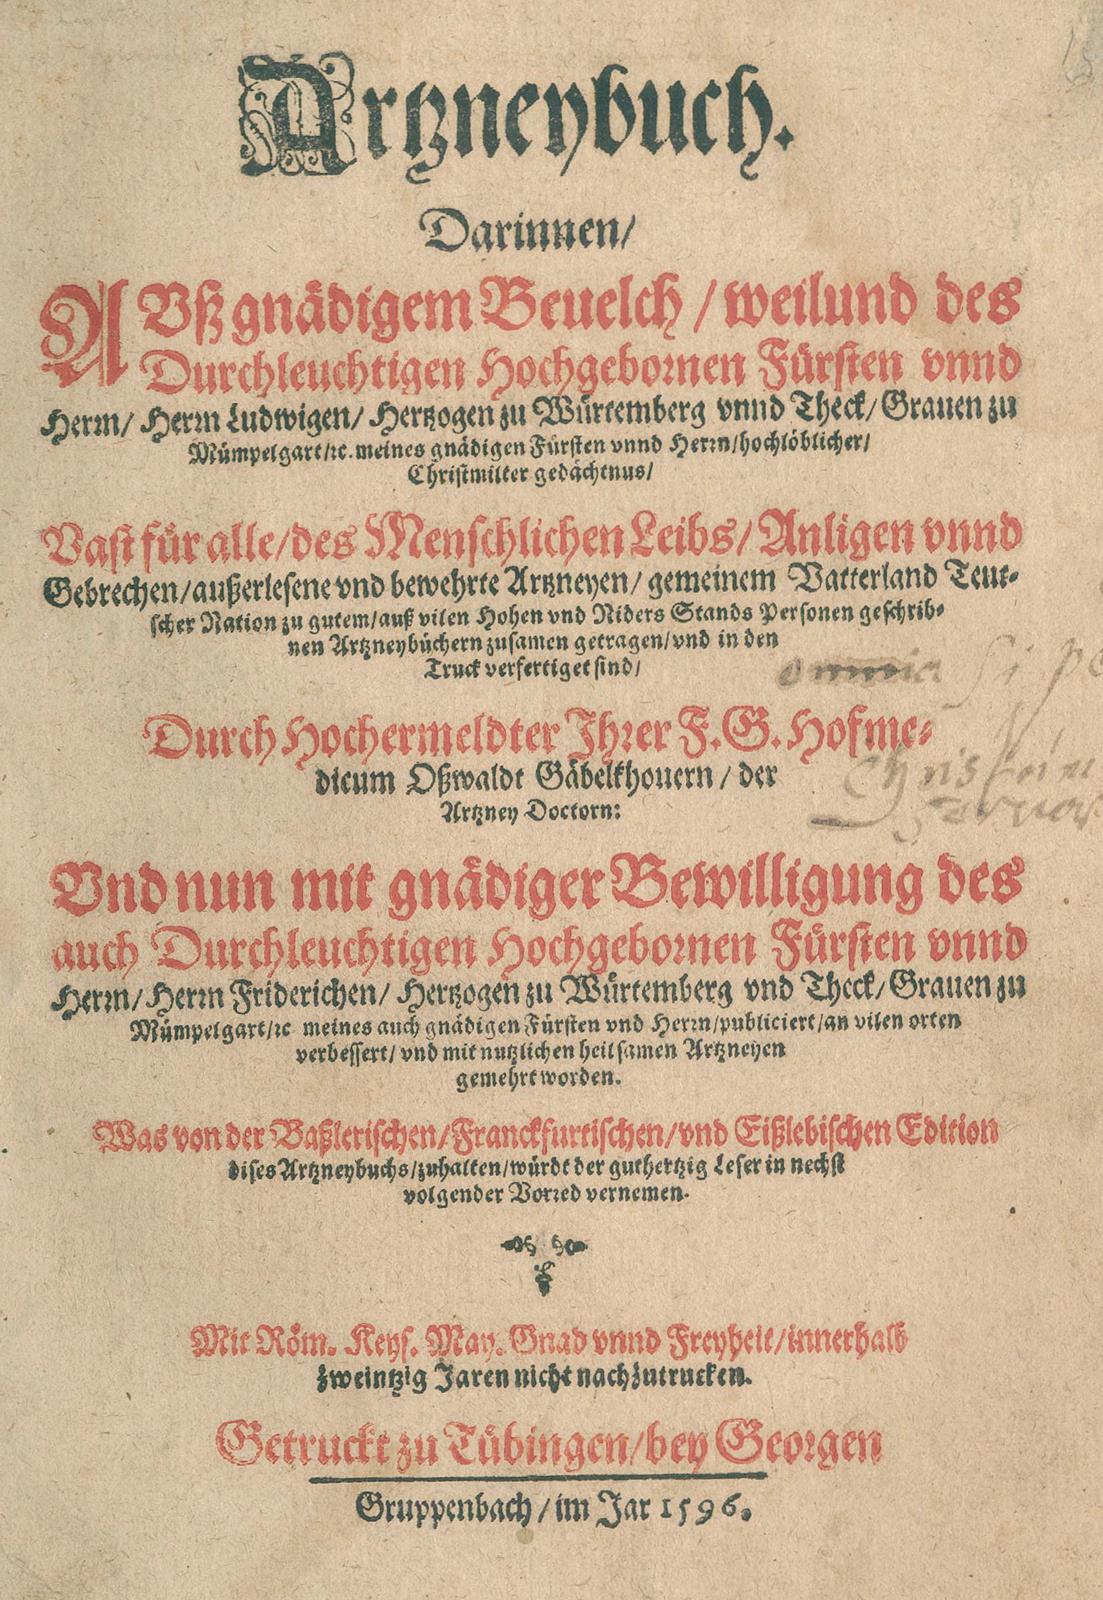 Artzneybuch.
Darinnen/
AVß gnädigem Beuelch/ weilund des
Durchleuchtigen Hochgebornen Fürsten vnnd
Herrn/ Herrn Ludwigen/ Hertzogen zu Würtemberg vnnd Theck/ Grauen zu
Mümpelgart/ꝛc. meines gnädigen Fürsten vnnd Herrn/hochlöblicher/
Christmilter gedächtnus/
Vast für alle/des Menschlichen Leibs/ Anligen vnnd
Gebrechen/außerlesene vnd bewehrte Artzneyen/ gemeinem Vatterland Teut-
scher Nation zu gutem/auß vilen Hohen vnd Niders Stands Personen geschrib-
nen Artzneybüchern zusamen getragen/vnd in den
Truck verfertiget sind/
Durch Hochermeldter Ihrer F. G. Hofme-
dicum Oßwaldt Gäbelkhouern/ der
Artzney Doctorn:
Vnd nun mit gnädiger Bewilligung des
auch Durchleuchtigen Hochgebornen Fürsten vnnd
Herrn/ Herrn Friderichen/ Hertzogen zu Würtemberg vnd Theck/ Grauen zu
Mümpelgart/ꝛc meines auch gnädigen Fürsten vnd Herrn/publiciert/an vilen orten
verbessert/ vnd mit nutzlichen heilsamen Artzneyen
gemehrt worden.
Was von der Baßlerischen/Franckfurtischen/vnd Eißlebischen Edition
dises Artzneybuchs/zuhalten/würdt der guthertzig Leser in nechst
volgender Vorred vernemen.
Mit Röm. Keys. May. Gnad vnnd Freyheit/innerhalb
zweintzig Jaren nicht nachzutrucken.
Getruckt zu Tübingen/bey Georgen
Gruppenbach/im Jar 1596.